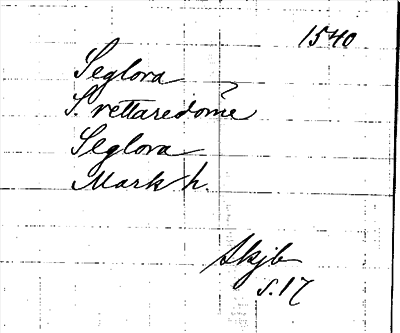 1540
Seglora
S. rettaredöme
Seglora
Mark h.
Skjb
s. 17